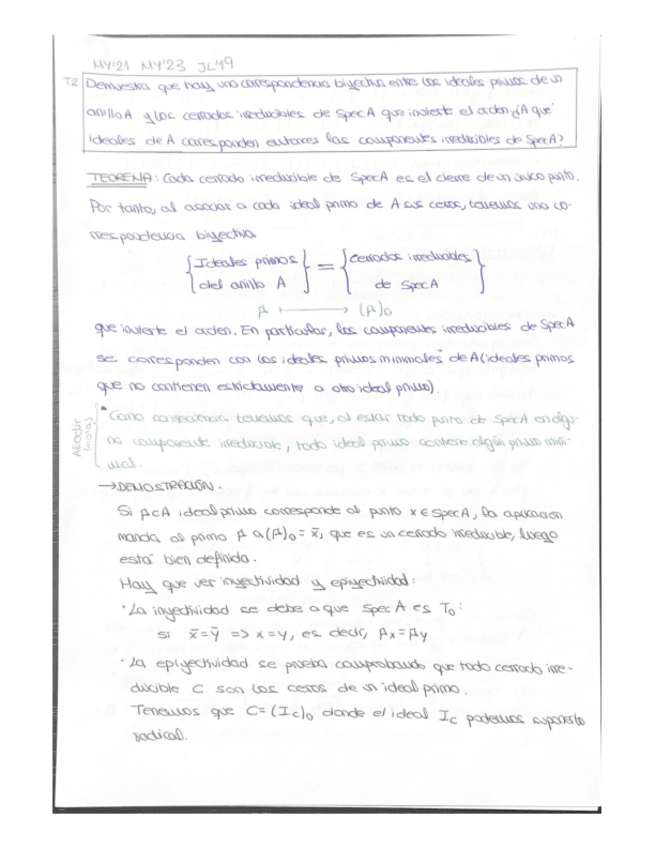 MY'21 MY'23 JL'19
T2 Demuestra que hay una correspondencia biyectiva entre los ideales primos de un
anillo A y los cerrados irreducibles de Spec A que invierte el orden ¿A qué
ideales de A corresponden entonces las componentes irreducibles de Spec A?
TEOREMA: Cada cerrado irreducible de Spec A es el cierre de un único punto.
Por tanto, al asociar a cada ideal primo de A sus ceros, tenemos una co-
rrespondencia biyectiva
{Ideales primos del anillo A} = {cerrados irreducibles de Spec A}
p ⟼ (p)₀
que invierte el orden. En particular, las componentes irreducibles de Spec A
se corresponden con los ideales primos minimales* de A (ideales primos
que no contienen estrictamente a otro ideal primo).
Añadir (nota)
* Como consecuencia tenemos que, al estar todo punto de Spec A en algu-
na componente irreducible, todo ideal primo contiene algún primo mini-
mal.
→ DEMOSTRACIÓN.
Si p⊂A ideal primo corresponde al punto x ∈ Spec A, la aplicación
manda al primo p a (p)₀ = x̄, que es un cerrado irreducible, luego
está bien definida.
Hay que ver inyectividad y epiyectividad:
· La inyectividad se debe a que Spec A es T₀:
si x̄ = ȳ => x = y, es decir, pₓ = p_y
· La epiyectividad se prueba comprobando que todo cerrado irre-
ducible C son los ceros de un ideal primo.
Tenemos que C = (I_C)₀ donde el ideal I_C podemos suponerlo
radical.